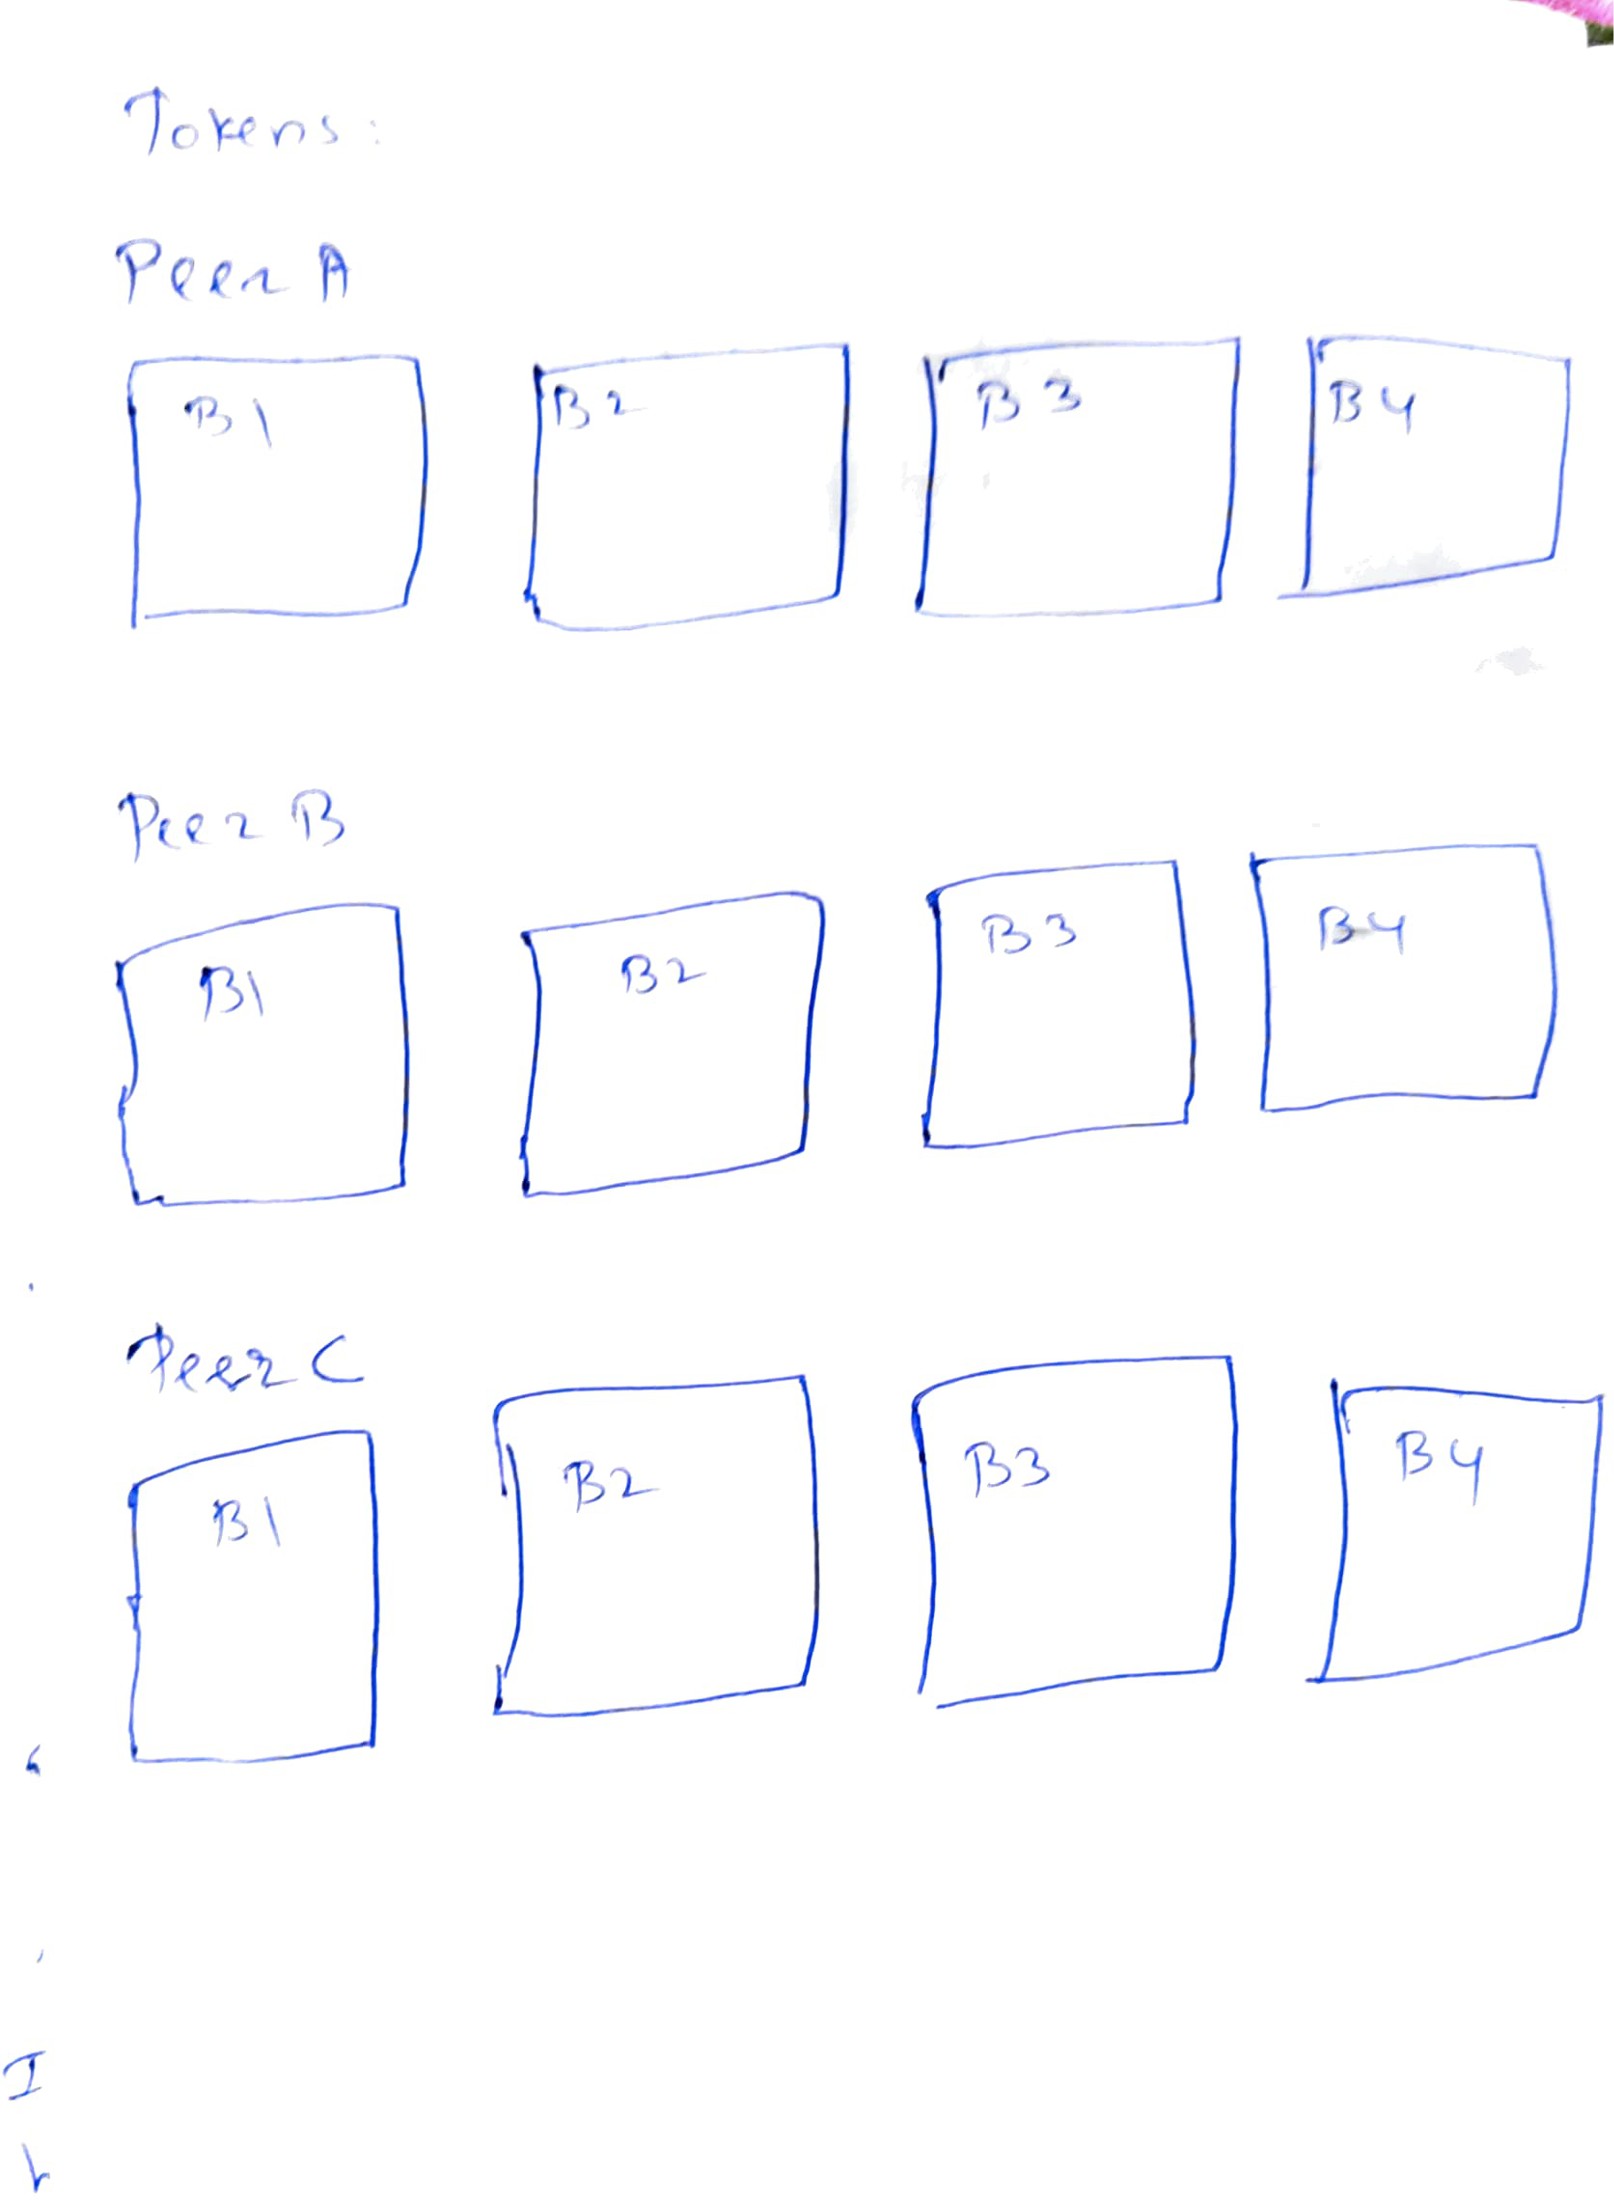 Tokens:
Peer A
B1 B2 B3 B4
Peer B
B1 B2 B3 B4
Peer C
B1 B2 B3 B4
I